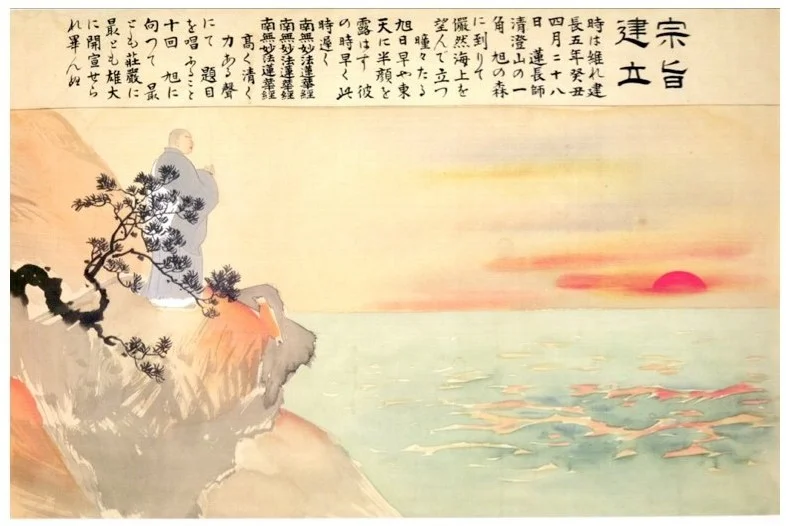 宗旨
建立
時は維れ建
長五年癸丑
四月二十八
日 蓮長師
清澄山の一
角 旭の森
に到りて
儼然海上を
望んで立つ
瞳々たる
旭日早や東
天に半顔を
露はす 彼
の時早く此
時遅く
南無妙法蓮華經
南無妙法蓮華經
南無妙法蓮華經
高く清く
力ある聲
にて 題目
を唱ふること
十回 旭に
向つて 最
とも莊嚴に
最とも雄大
に開宣せら
れ畢んぬ